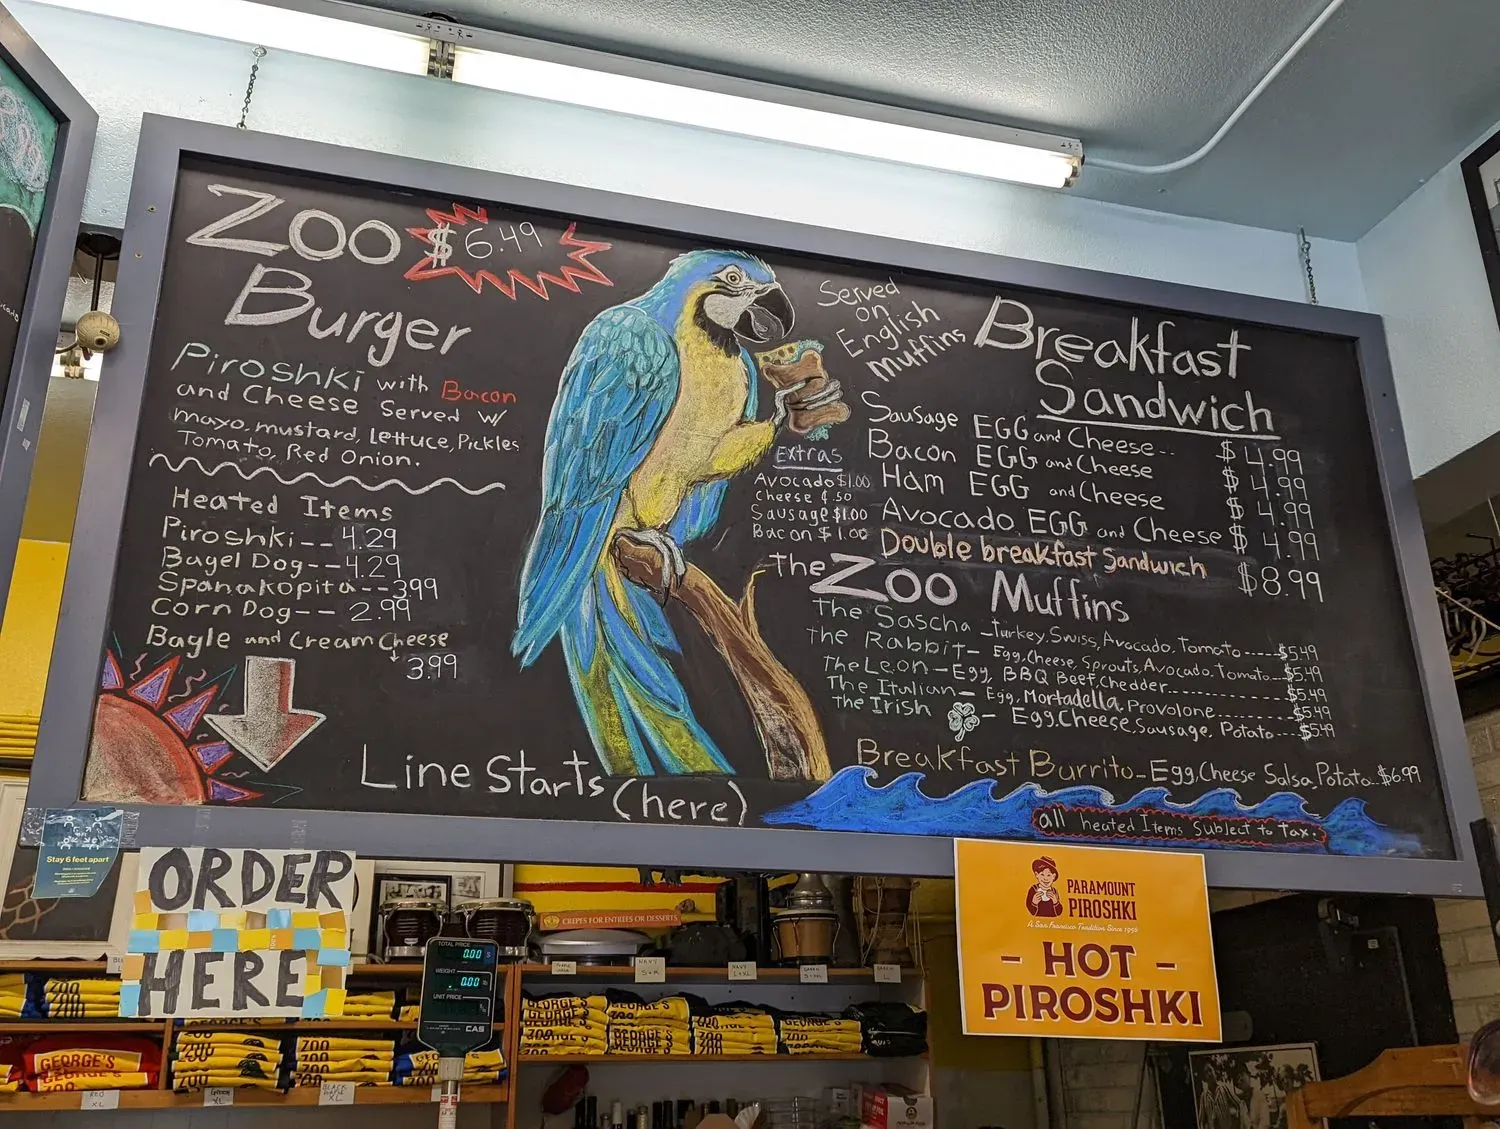 Zoo $6.49
Burger
Piroshki with Bacon
and Cheese Served w/
mayo, mustard, lettuce, Pickles
Tomato, Red Onion.
Heated Items
Piroshki-- 4.29
Bagel Dog--4.29
Spanakopita--3.99
Corn Dog-- 2.99
Bagle and Cream Cheese
3.99
Line Starts (here)
Served
on
English
muffins
Extras
Avocado $1.00
Cheese $.50
Sausage $1.00
Bacon $1.00
Breakfast
Sandwich
Sausage EGG and Cheese.. $4.99
Bacon EGG and Cheese $4.99
Ham EGG and Cheese $4.99
Avocado EGG and Cheese $4.99
Double breakfast Sandwich $8.99
The Zoo Muffins
The Sascha -Turkey, Swiss, Avocado, Tomato-----$5.49
The Rabbit- Egg, Cheese, Sprouts, Avocado, Tomato---$5.49
The Leon-Egg, BBQ Beef, Chedder------------$5.49
The Italian- Egg, Mortadella, Provolone---------$5.49
The Irish - Egg, Cheese, Sausage, Potato---$5.49
Breakfast Burrito-Egg, Cheese Salsa, Potato..$6.99
all heated Items Subject to Tax.
Stay 6 feet apart
ORDER
HERE
CREPES FOR ENTREES OR DESSERTS
PARAMOUNT
PIROSHKI
A San Francisco Tradition Since 1956
- HOT -
PIROSHKI
TOTAL PRICE
0.00 $
WEIGHT
0.00 lb
UNIT PRICE
CAS
NAVY
S+M
NAVY
L+XL
GEORGE'S
ZOO
GEORGE'S
ZOO
GEORGE'S
ZOO
RED
XL
XL
BLACK
XL